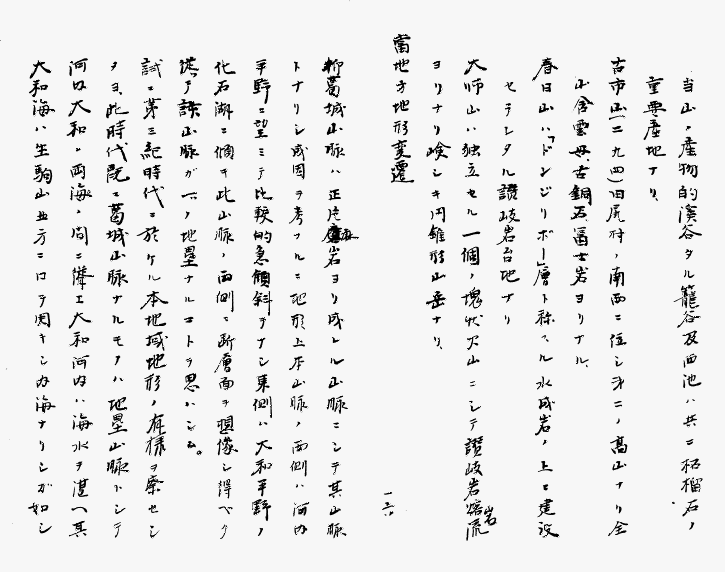 当山ノ産物的溪谷タル籠谷及西池ハ共ニ柘榴石ノ
重要産地ナリ、
古市山(二九四)旧尻村ノ南西ニ位シ第二ノ高山ナリ全
山含雲母古銅石富士岩ヨリナル、
春日山ハ「ドンジリボー」層ト称スル水成岩ノ上ニ建設
セラレタル讃岐岩台地ナリ
大師山ハ独立セル一個ノ塊状火山ニシテ讃岐岩熔流
ヨリナリ嶮シキ円錐形山岳ナリ、
當地方地形変遷
一六
抑葛城山脈ハ正片麻岩ヨリ成レル山脈ニシテ其山脈
トナリシ成因ヲ考フルニ地形上本山脈ノ西側ハ河内
平野ニ望ミテ比較的急傾斜ヲナシ東側ハ大和平野ノ
化石湖ニ傾キ此山脈ノ両側ニ断層面ヲ想像シ得ベク
従ッテ該山脈ガ一ノ地塁ナルコトヲ思ハシム。
試ニ第三紀時代ニ於ケル本地域地形ノ有様ヲ察セン
タヨ、此時代既ニ葛城山脈ナルモノハ地塁山脈トシテ
河内大和ノ両海ノ間ニ隆エ大和河内ハ海水ヲ湛ヘ其
大和海ハ生駒山北方ニ口ヲ開キシ内海ナリシガ如シ